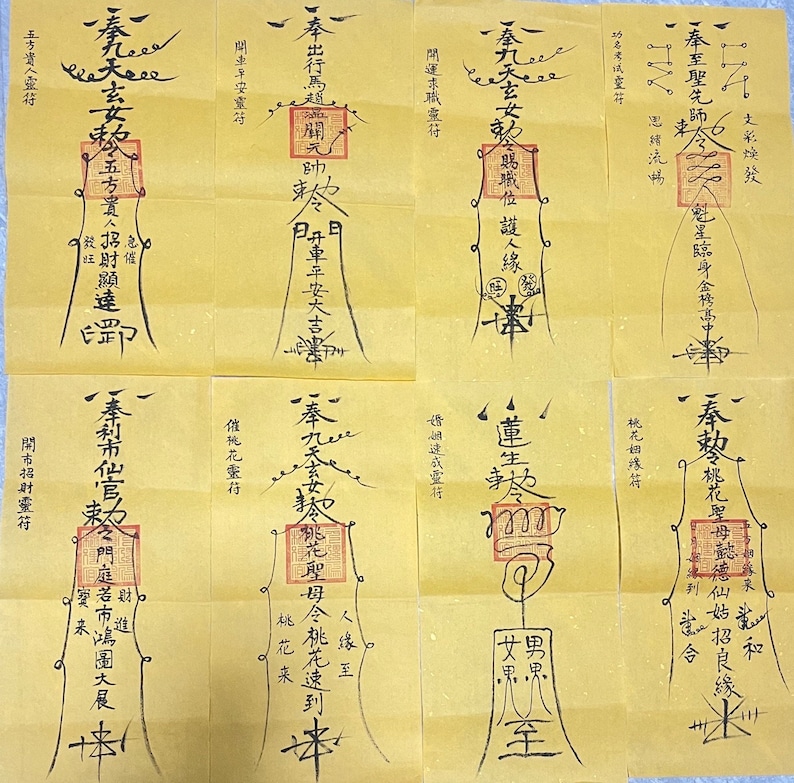 五方貴人靈符
奉九天玄女勅令五方貴人招財顯達
急催
發旺
印
開車平安靈符
奉出行馬趙溫關元帥勅令
日月
開車平安大吉
開運求職靈符
奉九天玄女勅令賜職位護人緣
發
旺
功名考試靈符
奉至聖先師勅令
魁星臨身金榜高中
文彩煥發
思緒流暢
開市招財靈符
奉利市仙官勅令門庭若市鴻圖大展
財進
寶來
催桃花靈符
奉九天玄女勅令桃花聖母令桃花速到
人緣至
桃花來
婚姻速成靈符
蓮生勅令
男
女
至
桃花姻緣符
奉勅令桃花聖母懿德仙姑招良緣
五方姻緣來
和
月姻緣到
合